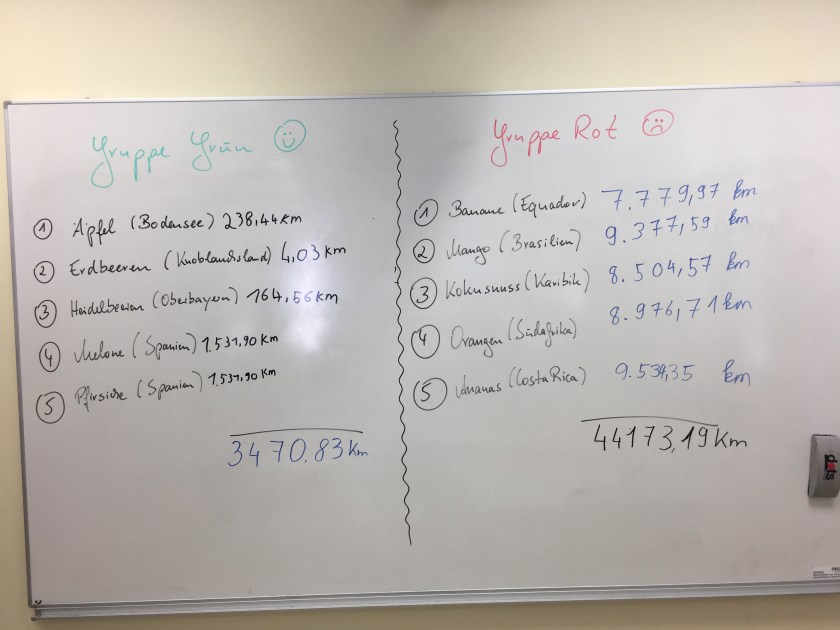 Gruppe Grün
① Äpfel (Bodensee) 238,44 km
② Erdbeeren (Knoblauchsland) 4,03 km
③ Heidelbeeren (Oberbayern) 164,56 km
④ Melone (Spanien) 1.531,90 km
⑤ Pfirsiche (Spanien) 1.531,90 km
3470,83 km
Gruppe Rot
① Banane (Equador) 7.779,97 km
② Mango (Brasilien) 9.377,59 km
③ Kokusnuss (Karibik) 8.504,57 km
④ Orangen (Südafrika) 8.976,71 km
⑤ Ananas (Costa Rica) 9.534,35 km
44173,19 km
dots